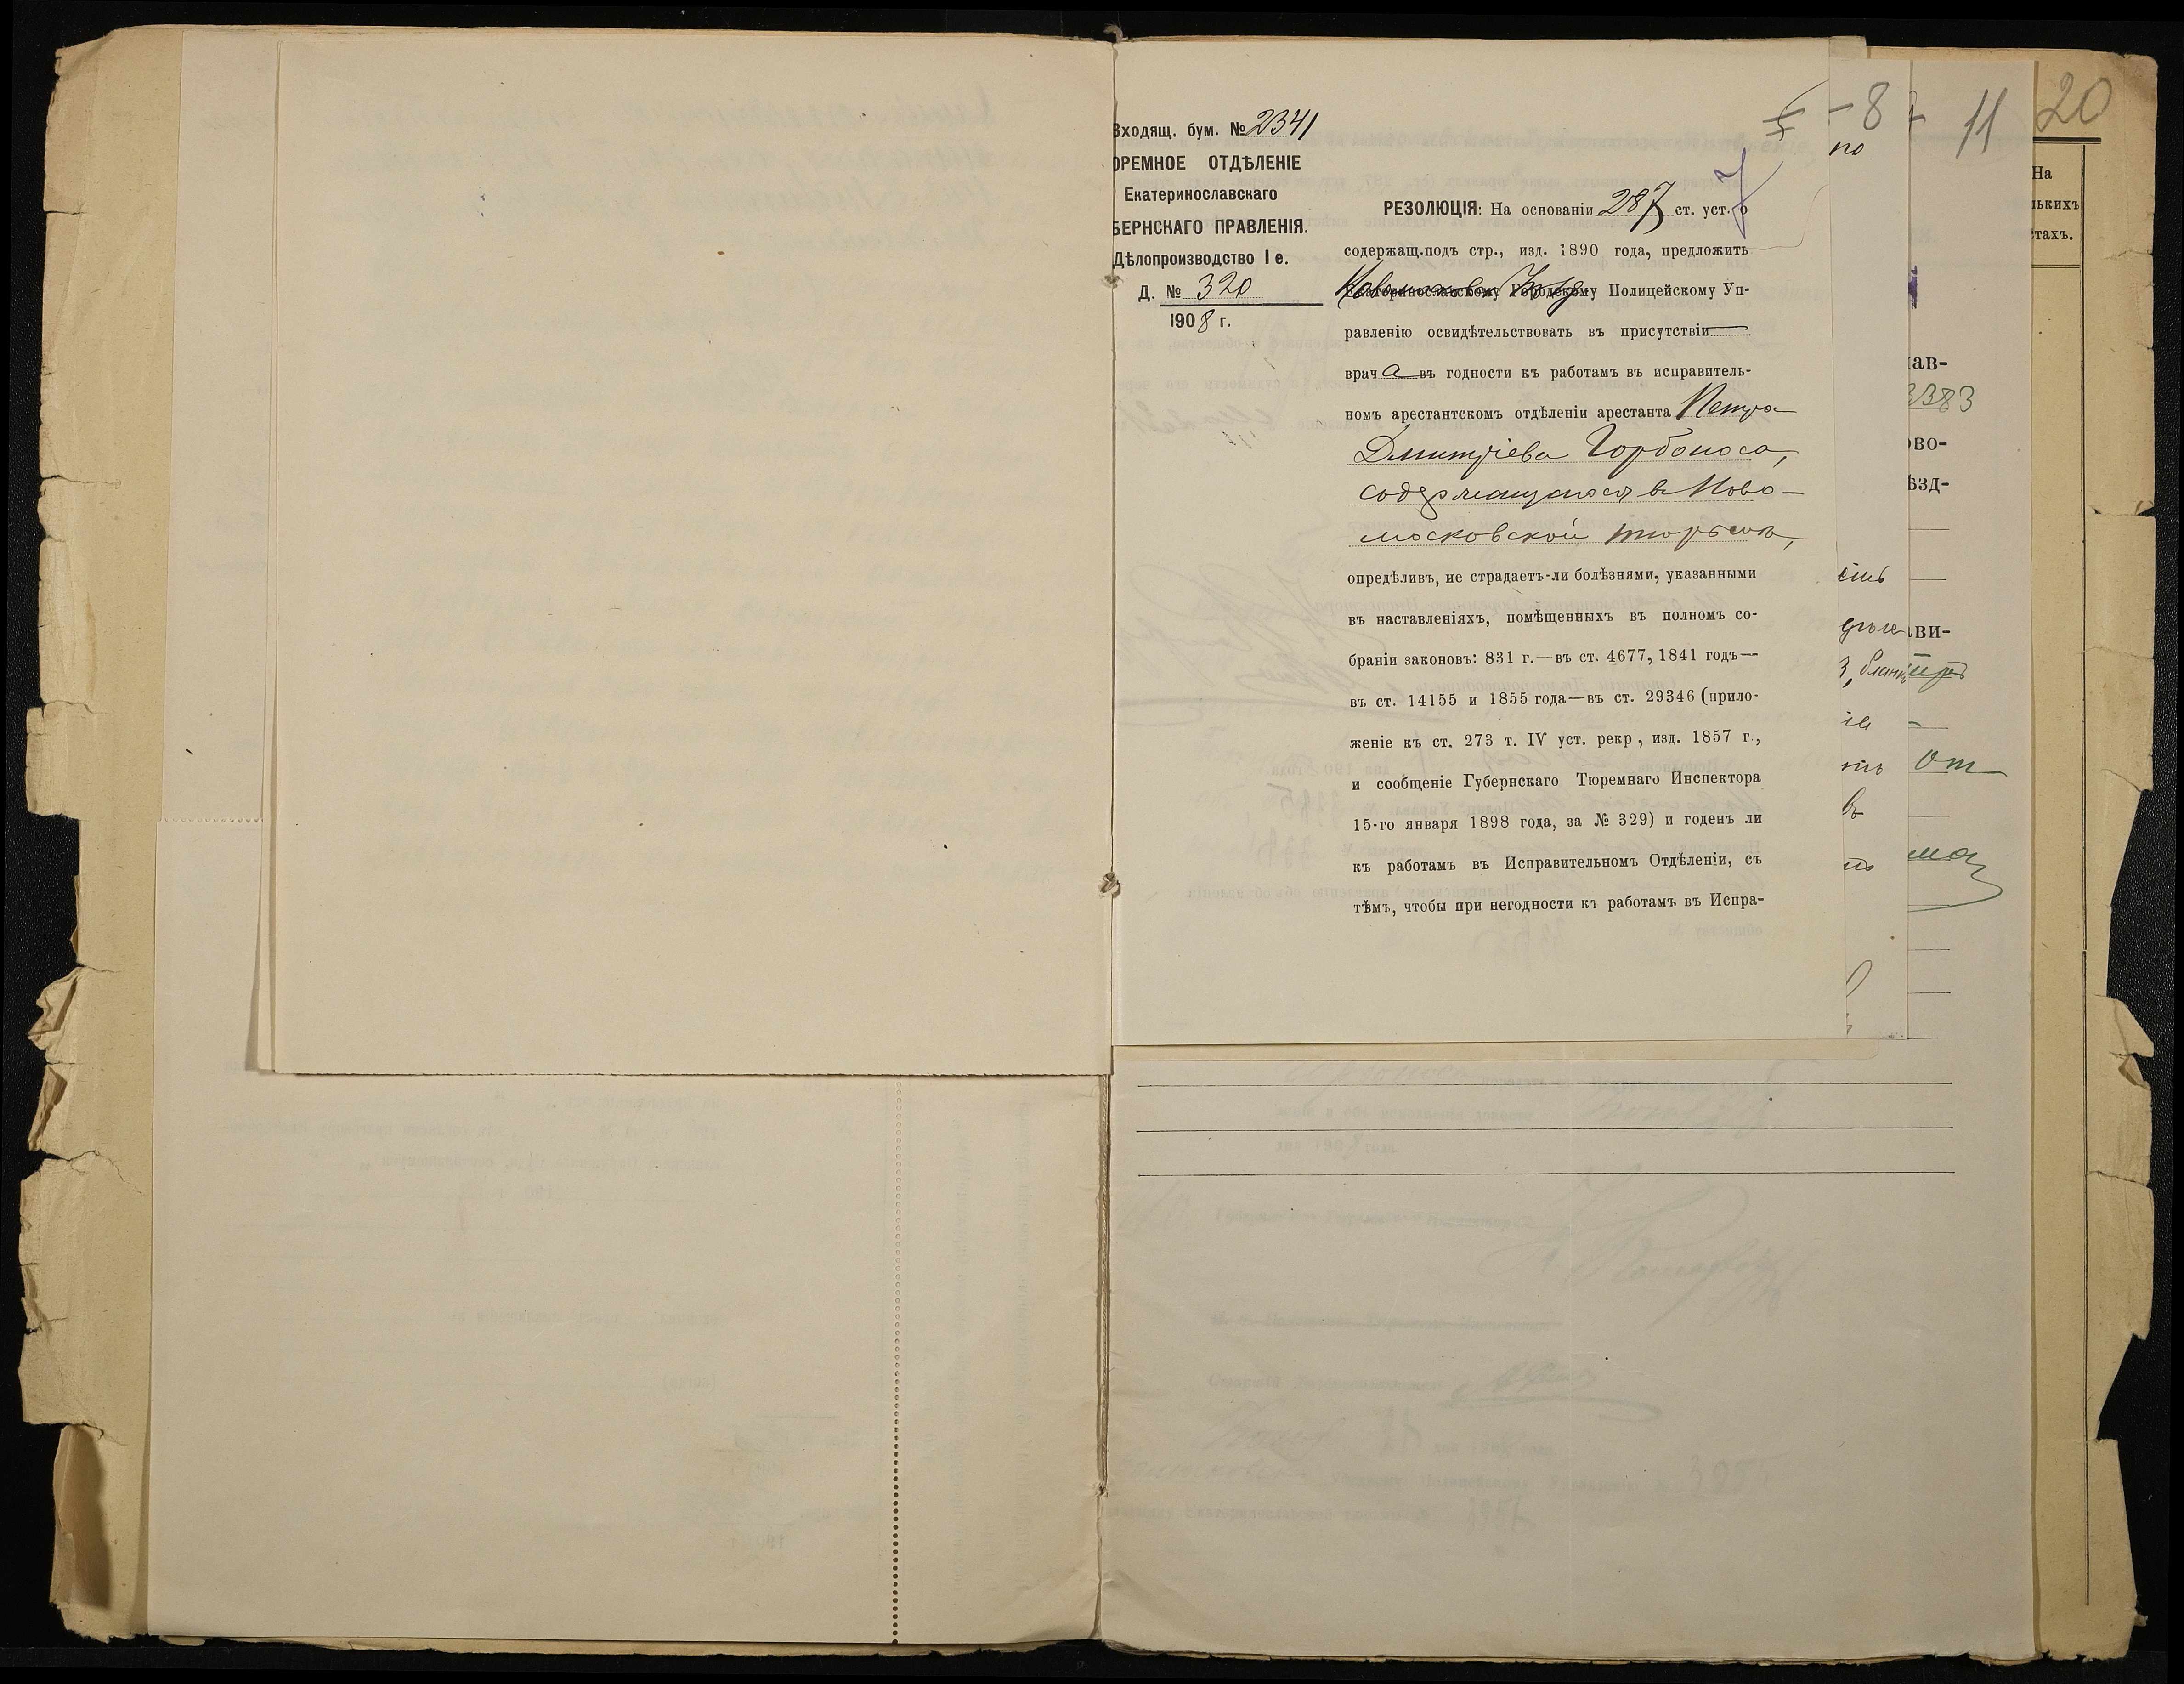 Входящ. бум. № 2341
ОРЕМНОЕ ОТДѢЛЕНІЕ
Екатеринославскаго
БЕРНСКАГО ПРАВЛЕНІЯ.
Дѣлопроизводство I е.
Д. № 320
1908 г.
5
7
РЕЗОЛЮЦІЯ: На основаніи 287 ст. уст. о
содержащ.подъ стр., изд. 1890 года, предложить
Екатеринославскому Городскому Полицейскому Уп-
равленію освидѣтельствовать въ присутствіи
врача въ годности къ работамъ въ исправитель-
номъ арестантскомъ отдѣленіи арестанта Петра
Дмитріева Горбоноса,
содержащагося въ Ново-
московской тюрьмѣ,
опредѣливъ, не страдаетъ-ли болѣзнями, указанными
въ наставленіяхъ, помѣщенныхъ въ полномъ со-
браніи законовъ: 831 г.—въ ст. 4677, 1841 годъ—
въ ст. 14155 и 1855 года—въ ст. 29346 (прило-
женіе къ ст. 273 т. IV уст. рекр, изд. 1857 г.,
и сообщеніе Губернскаго Тюремнаго Инспектора
15-го января 1898 года, за № 329) и годенъ ли
къ работамъ въ Исправительномъ Отдѣленіи, съ
тѣмъ, чтобы при негодности къ работамъ въ Испра-
8
по
въ
11
ав-
3383
ово-
ѣзд-
ви-
от
20
На
ькихъ
тахъ.